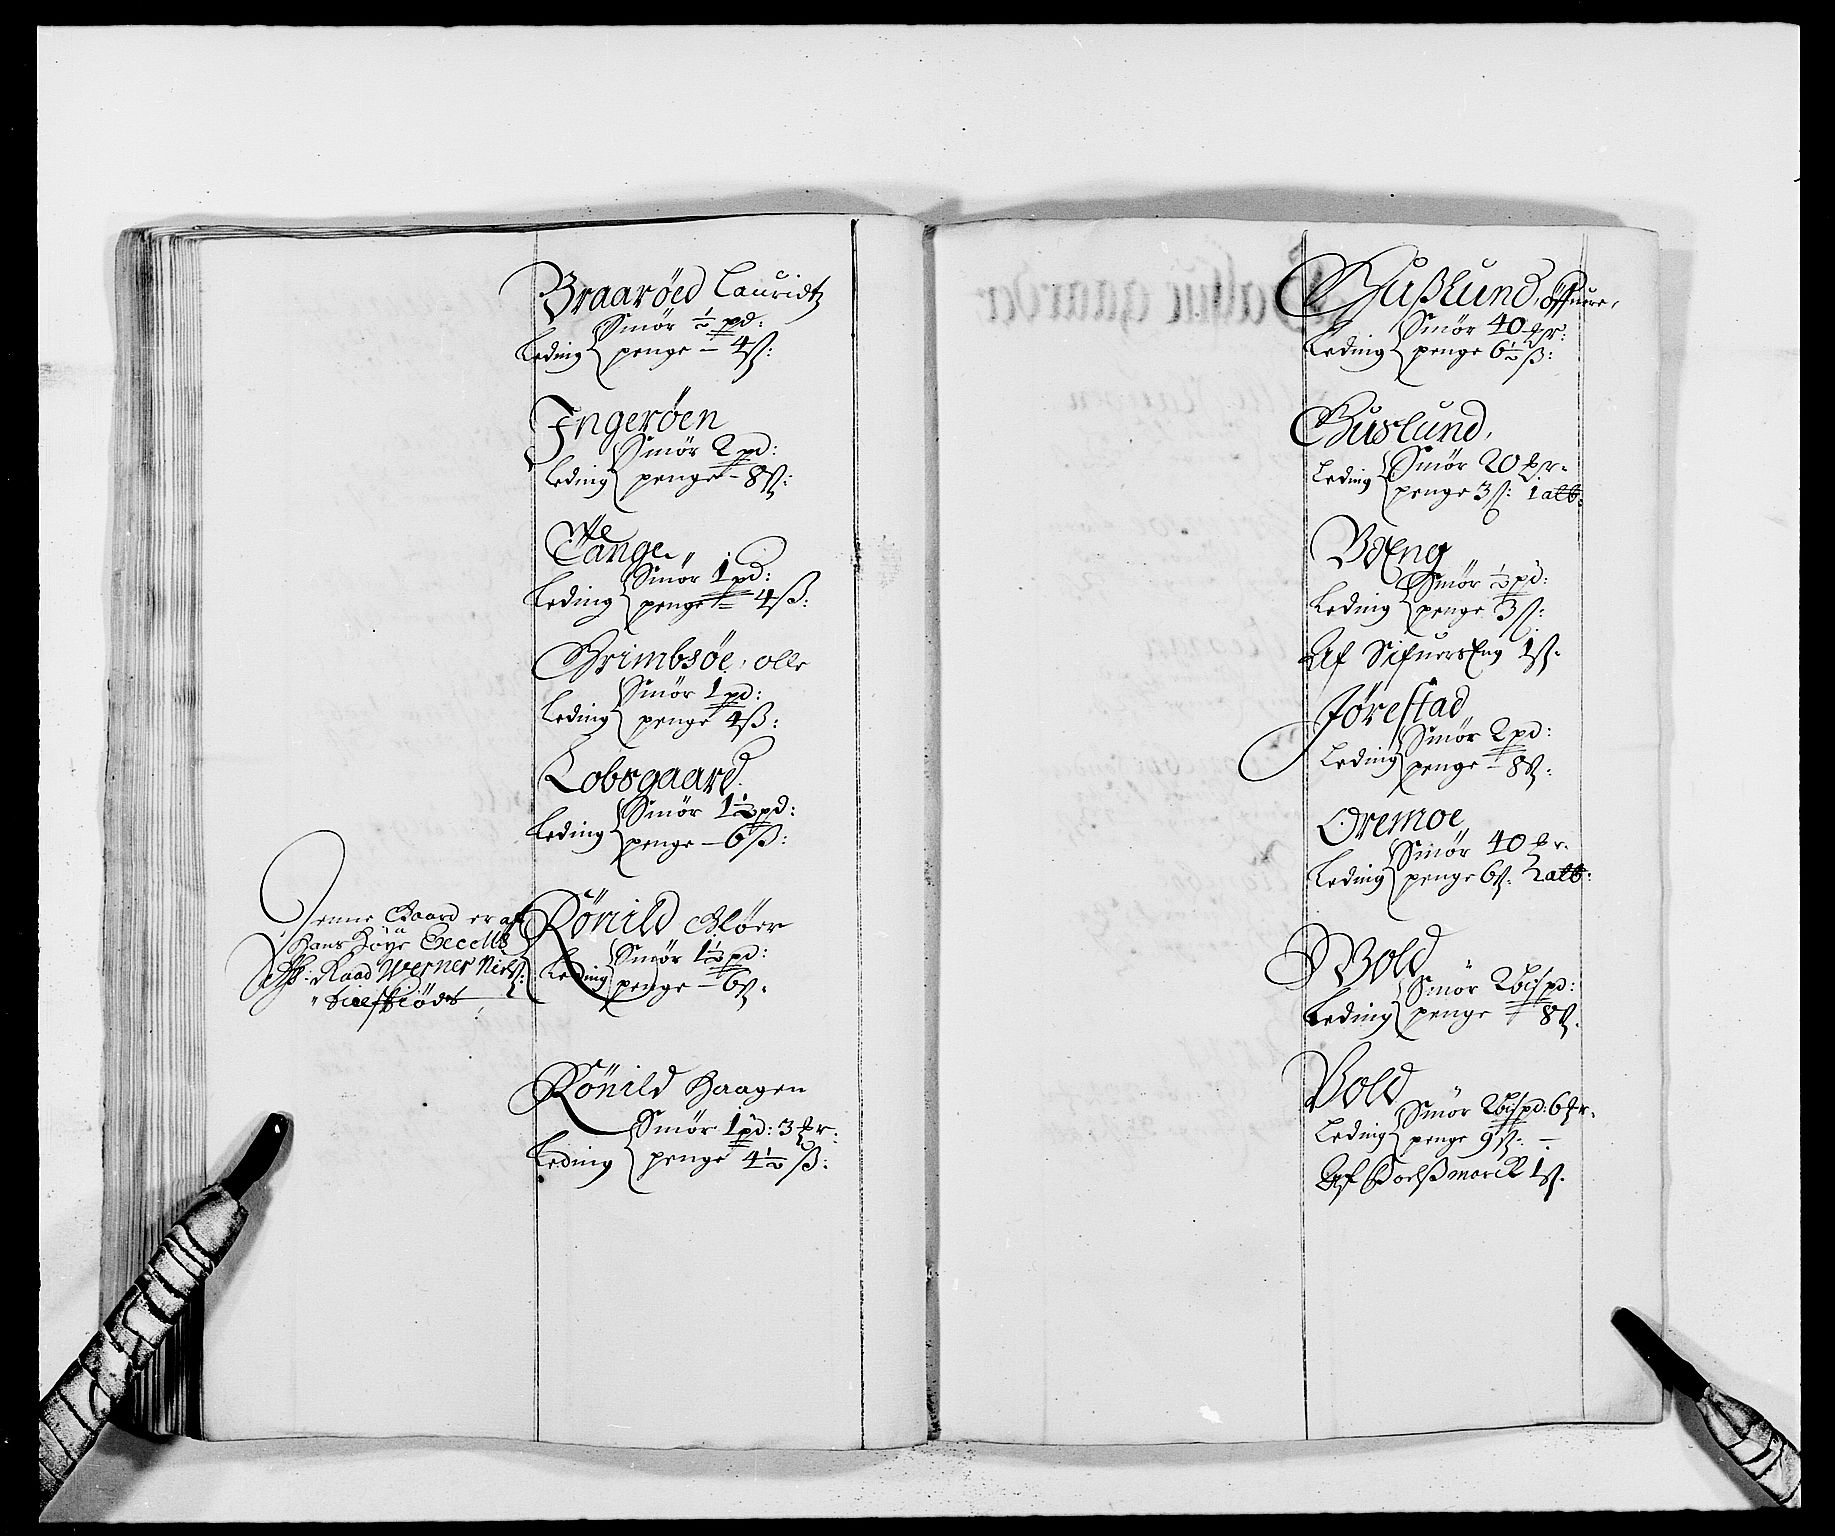 Braarøed Lauridtz
Smør ½ pd:
Leding penge – 4ß:
Ingerøen
Smør 2 pd:
Leding penge – 8ß:
Tange
Smør 1 pd:
Leding penge – 4ß:
Grimbsøe, olle
Smør 1 pd:
Leding penge 4ß:
Lobsgaard
Smør 1½ pd:
Leding penge – 6ß:
Denne Gaard er af
Hans Høye Excell:
Raad Werner Nielß:
Rönild
Smør 1½ pd:
Leding penge – 6ß.
Rönild Haagen
Smør 1 pd: 3 mr:
Leding penge 4½ ß:
Gußlund, öffuere,
Smør 40 mr:
Leding penge 6½ ß:
Guslund,
Smør 20 mr.
Leding penge 3ß: 1 alb:
Væng
Smør ½ pd:
Leding penge 3ß:
Af SifuersEng 1ß.
Jørestad
Smør 2 pd:
Leding penge – 8ß.
Oremoe
Smør 40 mr.
Leding penge 6ß. 2 alb:
Wold
Smør 2 bißpd:
Leding penge 8ß.
Vold
Smør 2 bißpd: 6 mr.
Leding penge 9ß: –
Af 1ß.